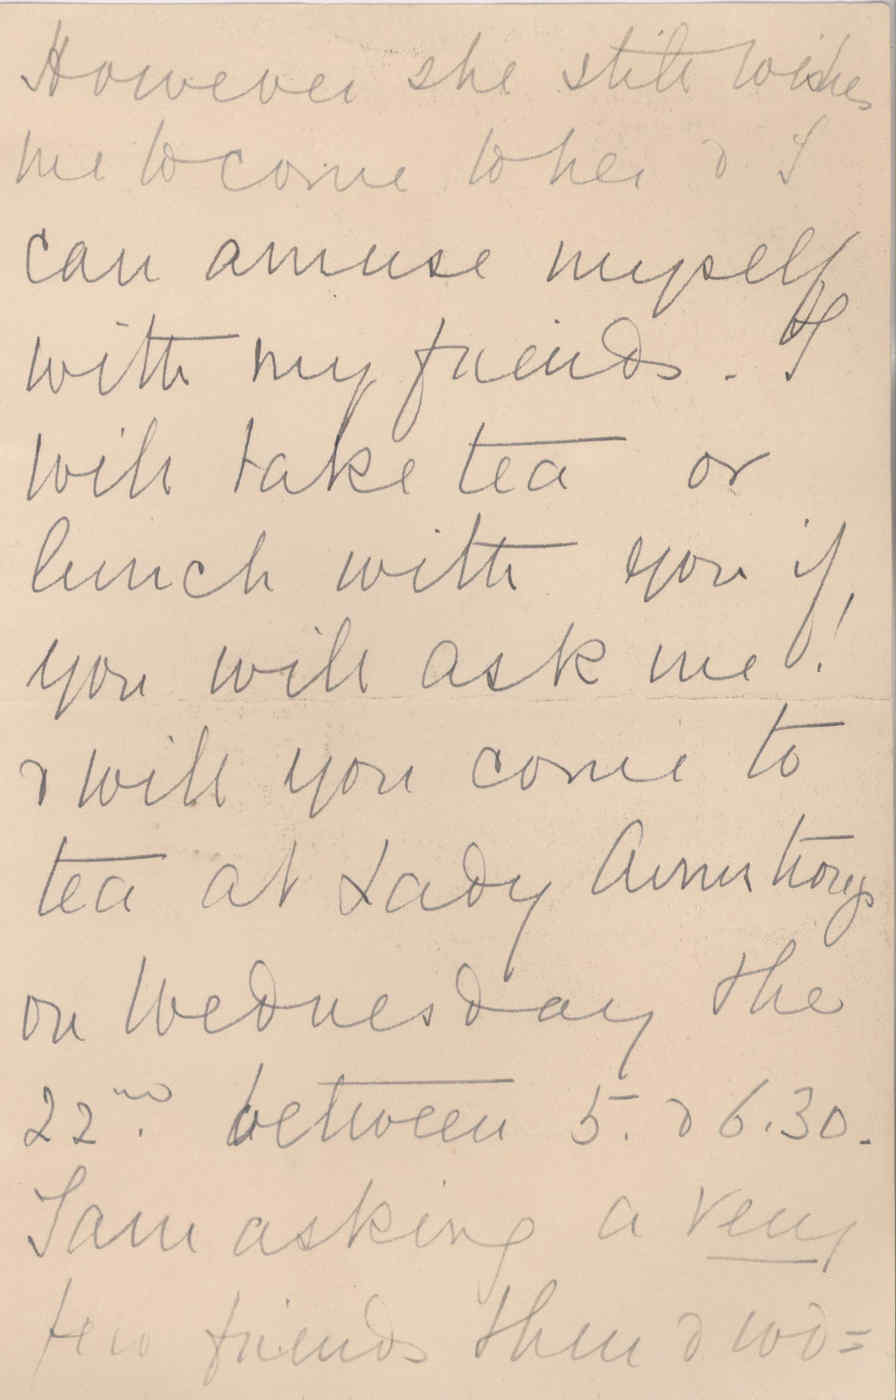 However she still wishes
me to come to her & I
can amuse myself
with my friends. I
will take tea or
lunch with you if,
you will ask me!
& will you come to
tea at Lady Armstrongs
on Wednesday the
22nd. between 5. & 6.30.
I am asking a very
few friends then & wd=